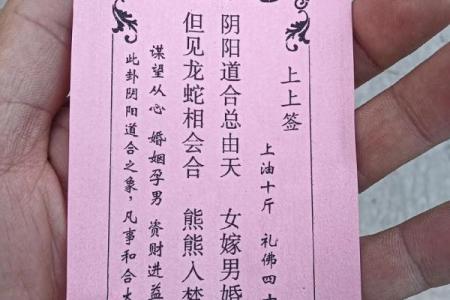 上上签
上油十斤 礼佛四十
阴阳道合总由天 女嫁男婚
但见龙蛇相会合 熊熊入梦
谋望从心 婚姻孕男 资财进益
此卦阴阳道合之象，凡事和合大